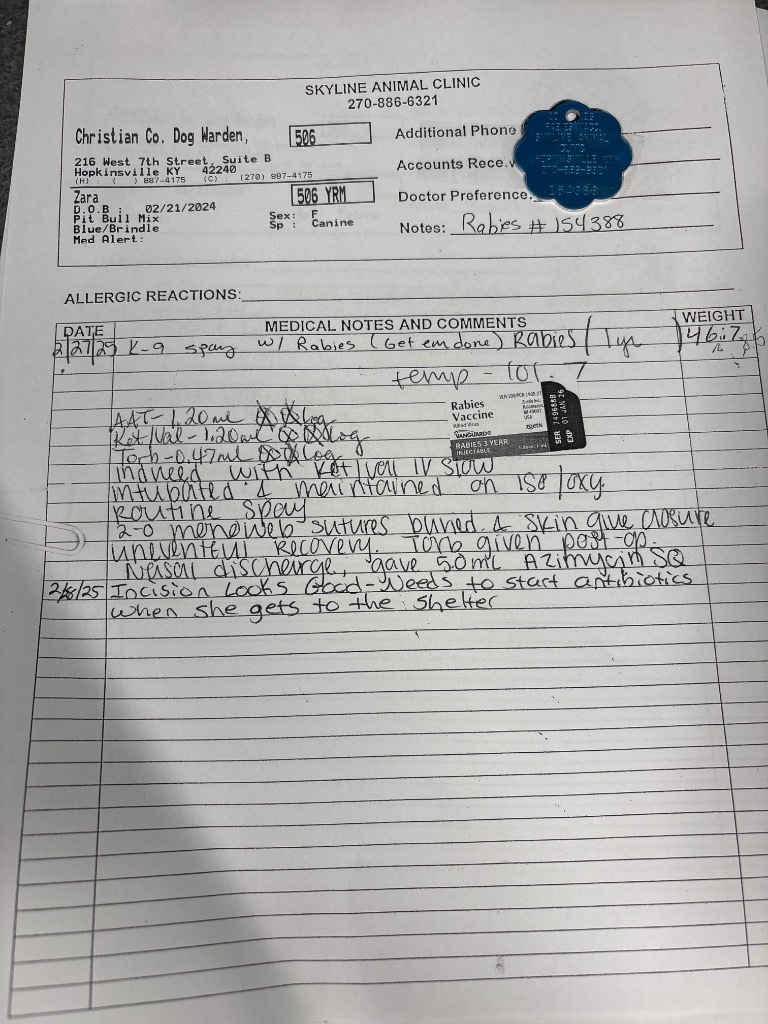 SKYLINE ANIMAL CLINIC
270-886-6321
Christian Co. Dog Warden,
506
Additional Phone
216 West 7th Street, Suite B
Hopkinsville KY 42240
(H) : ( ) 887-4175 (C) : (270) 887-4175
Accounts Rece.v
Zara
506 YRM
Doctor Preference:
D.O.B : 02/21/2024
Pit Bull Mix
Sex: F
Blue/Brindle
Sp : Canine
Med Alert:
Notes: Rabies # 154388
ALLERGIC REACTIONS:
DATE
MEDICAL NOTES AND COMMENTS
WEIGHT
2/27/25 K-9 spay w/ Rabies (Get em done) Rabies / 1yr 46.7
temp - 101.7
Rabies
Vaccine
Killed Virus
VANGUARD®
zoetis
RABIES 3 YEAR
INJECTABLE
SER 749688B
EXP 01 JAN 26
AAT- 1.20ml log
Ket/Val- 1.20ml log
Torb- 0.47ml log
induced with ket/val IV slow
intubated & maintained on ISO/oxy.
Routine Spay
2-0 monoweb sutures buried & skin glue closure
uneventful Recovery. Torb given post-op.
Nasal discharge, gave 5.0mL Azimycin SQ
2/8/25 Incision Looks Good-Needs to start antibiotics
when she gets to the shelter